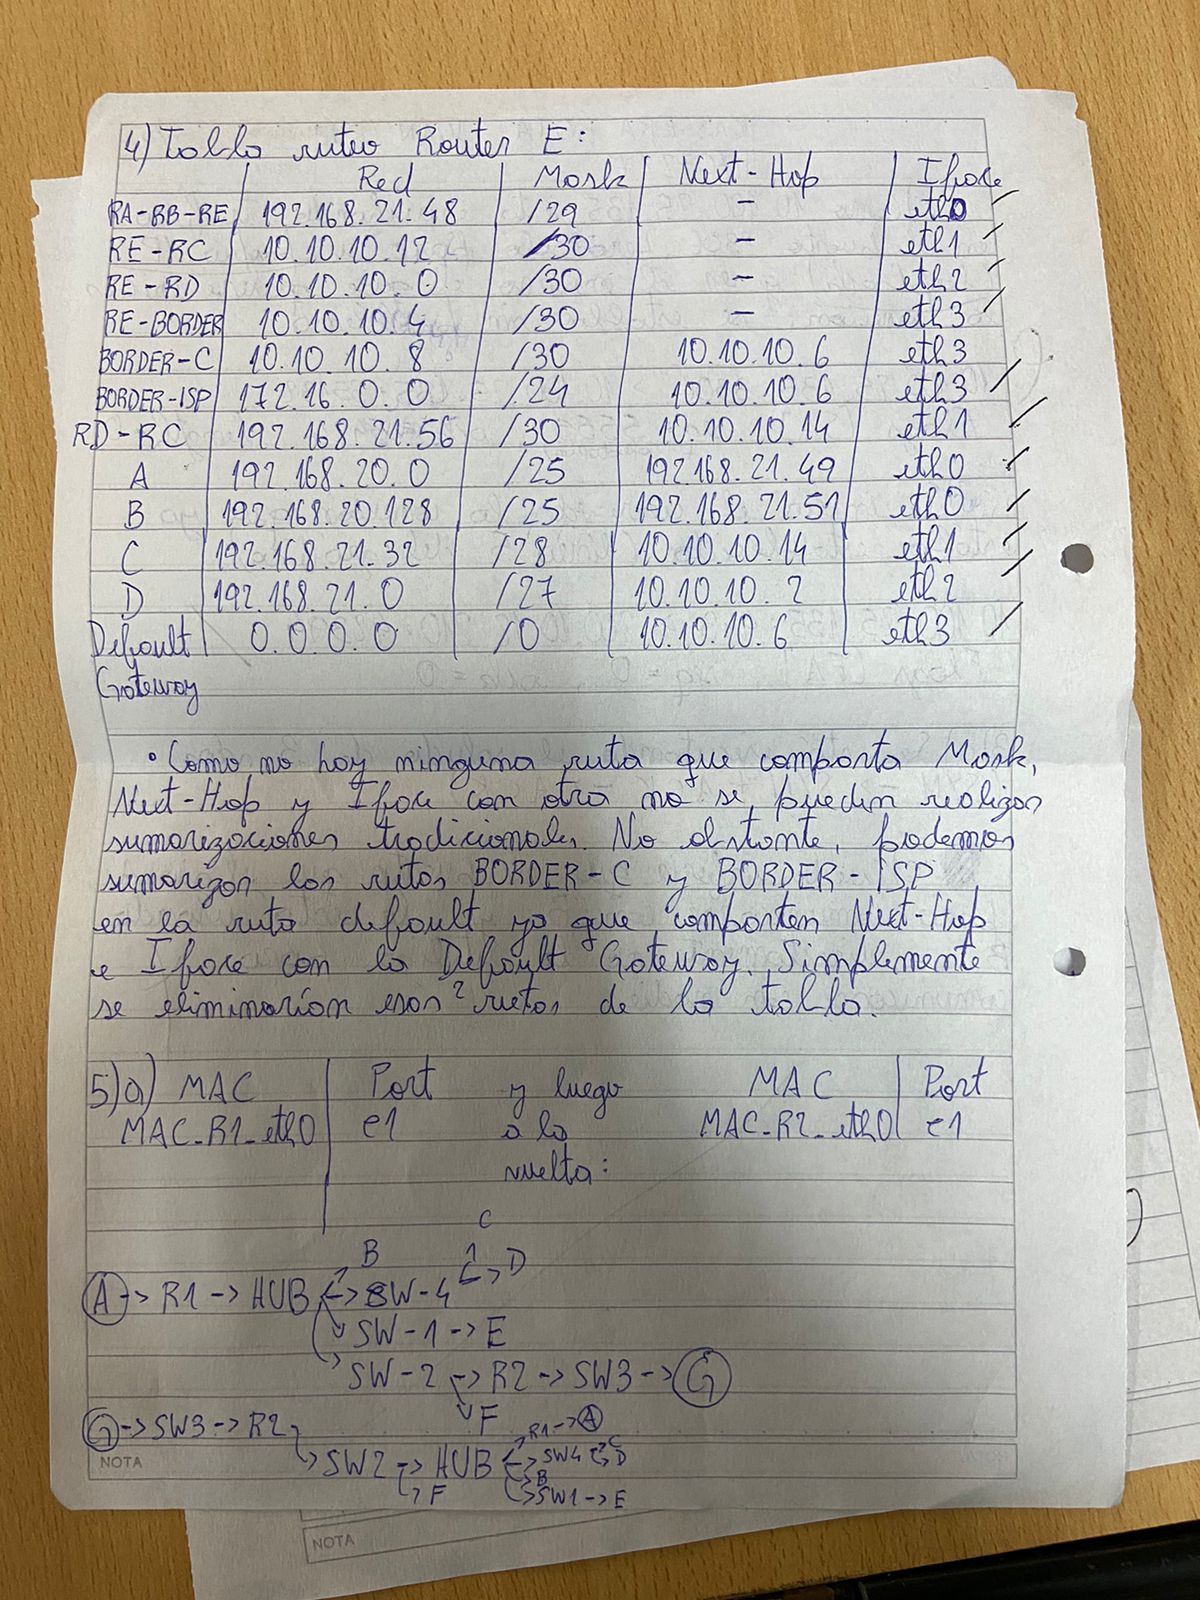 4) Tabla ruteo Router E:
Red Mask Next-Hop Iface
RA-RB-RE 192.168.21.48 /29 - eth0
RE-RC 10.10.10.12 /30 - eth1
RE-RD 10.10.10.0 /30 - eth2
RE-BORDER 10.10.10.4 /30 - eth3
BORDER-C 10.10.10.8 /30 10.10.10.6 eth3
BORDER-ISP 172.16.0.0 /24 10.10.10.6 eth3
RD-RC 192.168.21.56 /30 10.10.10.14 eth1
A 192.168.20.0 /25 192.168.21.49 eth0
B 192.168.20.128 /25 192.168.21.51 eth0
C 192.168.21.32 /28 10.10.10.14 eth1
D 192.168.21.0 /27 10.10.10.2 eth2
Default 0.0.0.0 /0 10.10.10.6 eth3
Gateway
° Como no hay ninguna ruta que comparta Mask,
Next-Hop y Iface con otra no se pueden realizar
sumarizaciones tradicionales. No obstante, podemos
sumarizar las rutas BORDER-C y BORDER-ISP
en la ruta default ya que comparten Next-Hop
e Iface con la Default Gateway. Simplemente
se eliminarían esas 2 rutas de la tabla.
5)a) MAC Port y luego MAC Port
MAC_R1_eth0 e1 a la MAC_R2_eth0 e1
vuelta:
C
B 1 D
A -> R1 -> HUB -> SW-4
SW-1 -> E
SW-2 -> R2 -> SW3 -> G
F
G -> SW3 -> R2
R1 -> A
SW2 -> HUB SW4 C D
F B
SW1 -> E
NOTA
NOTA